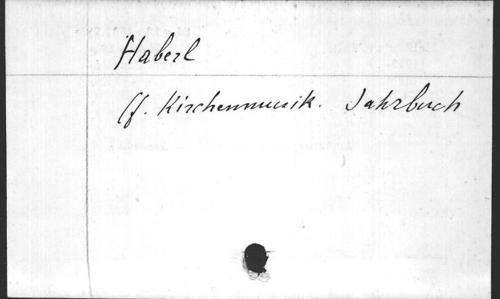 Haberl
Cf. Kirchenmusik. Jahrbuch